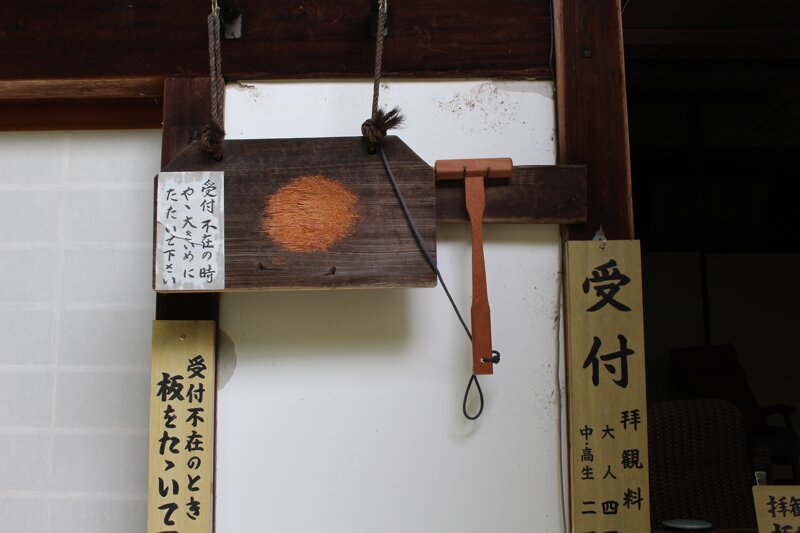 受付不在の時
やゝ大きいめに
たたいて下さい
受付不在のとき
板をたゝいて
受付
拝観料
大人 四
中・高生 二
拝観